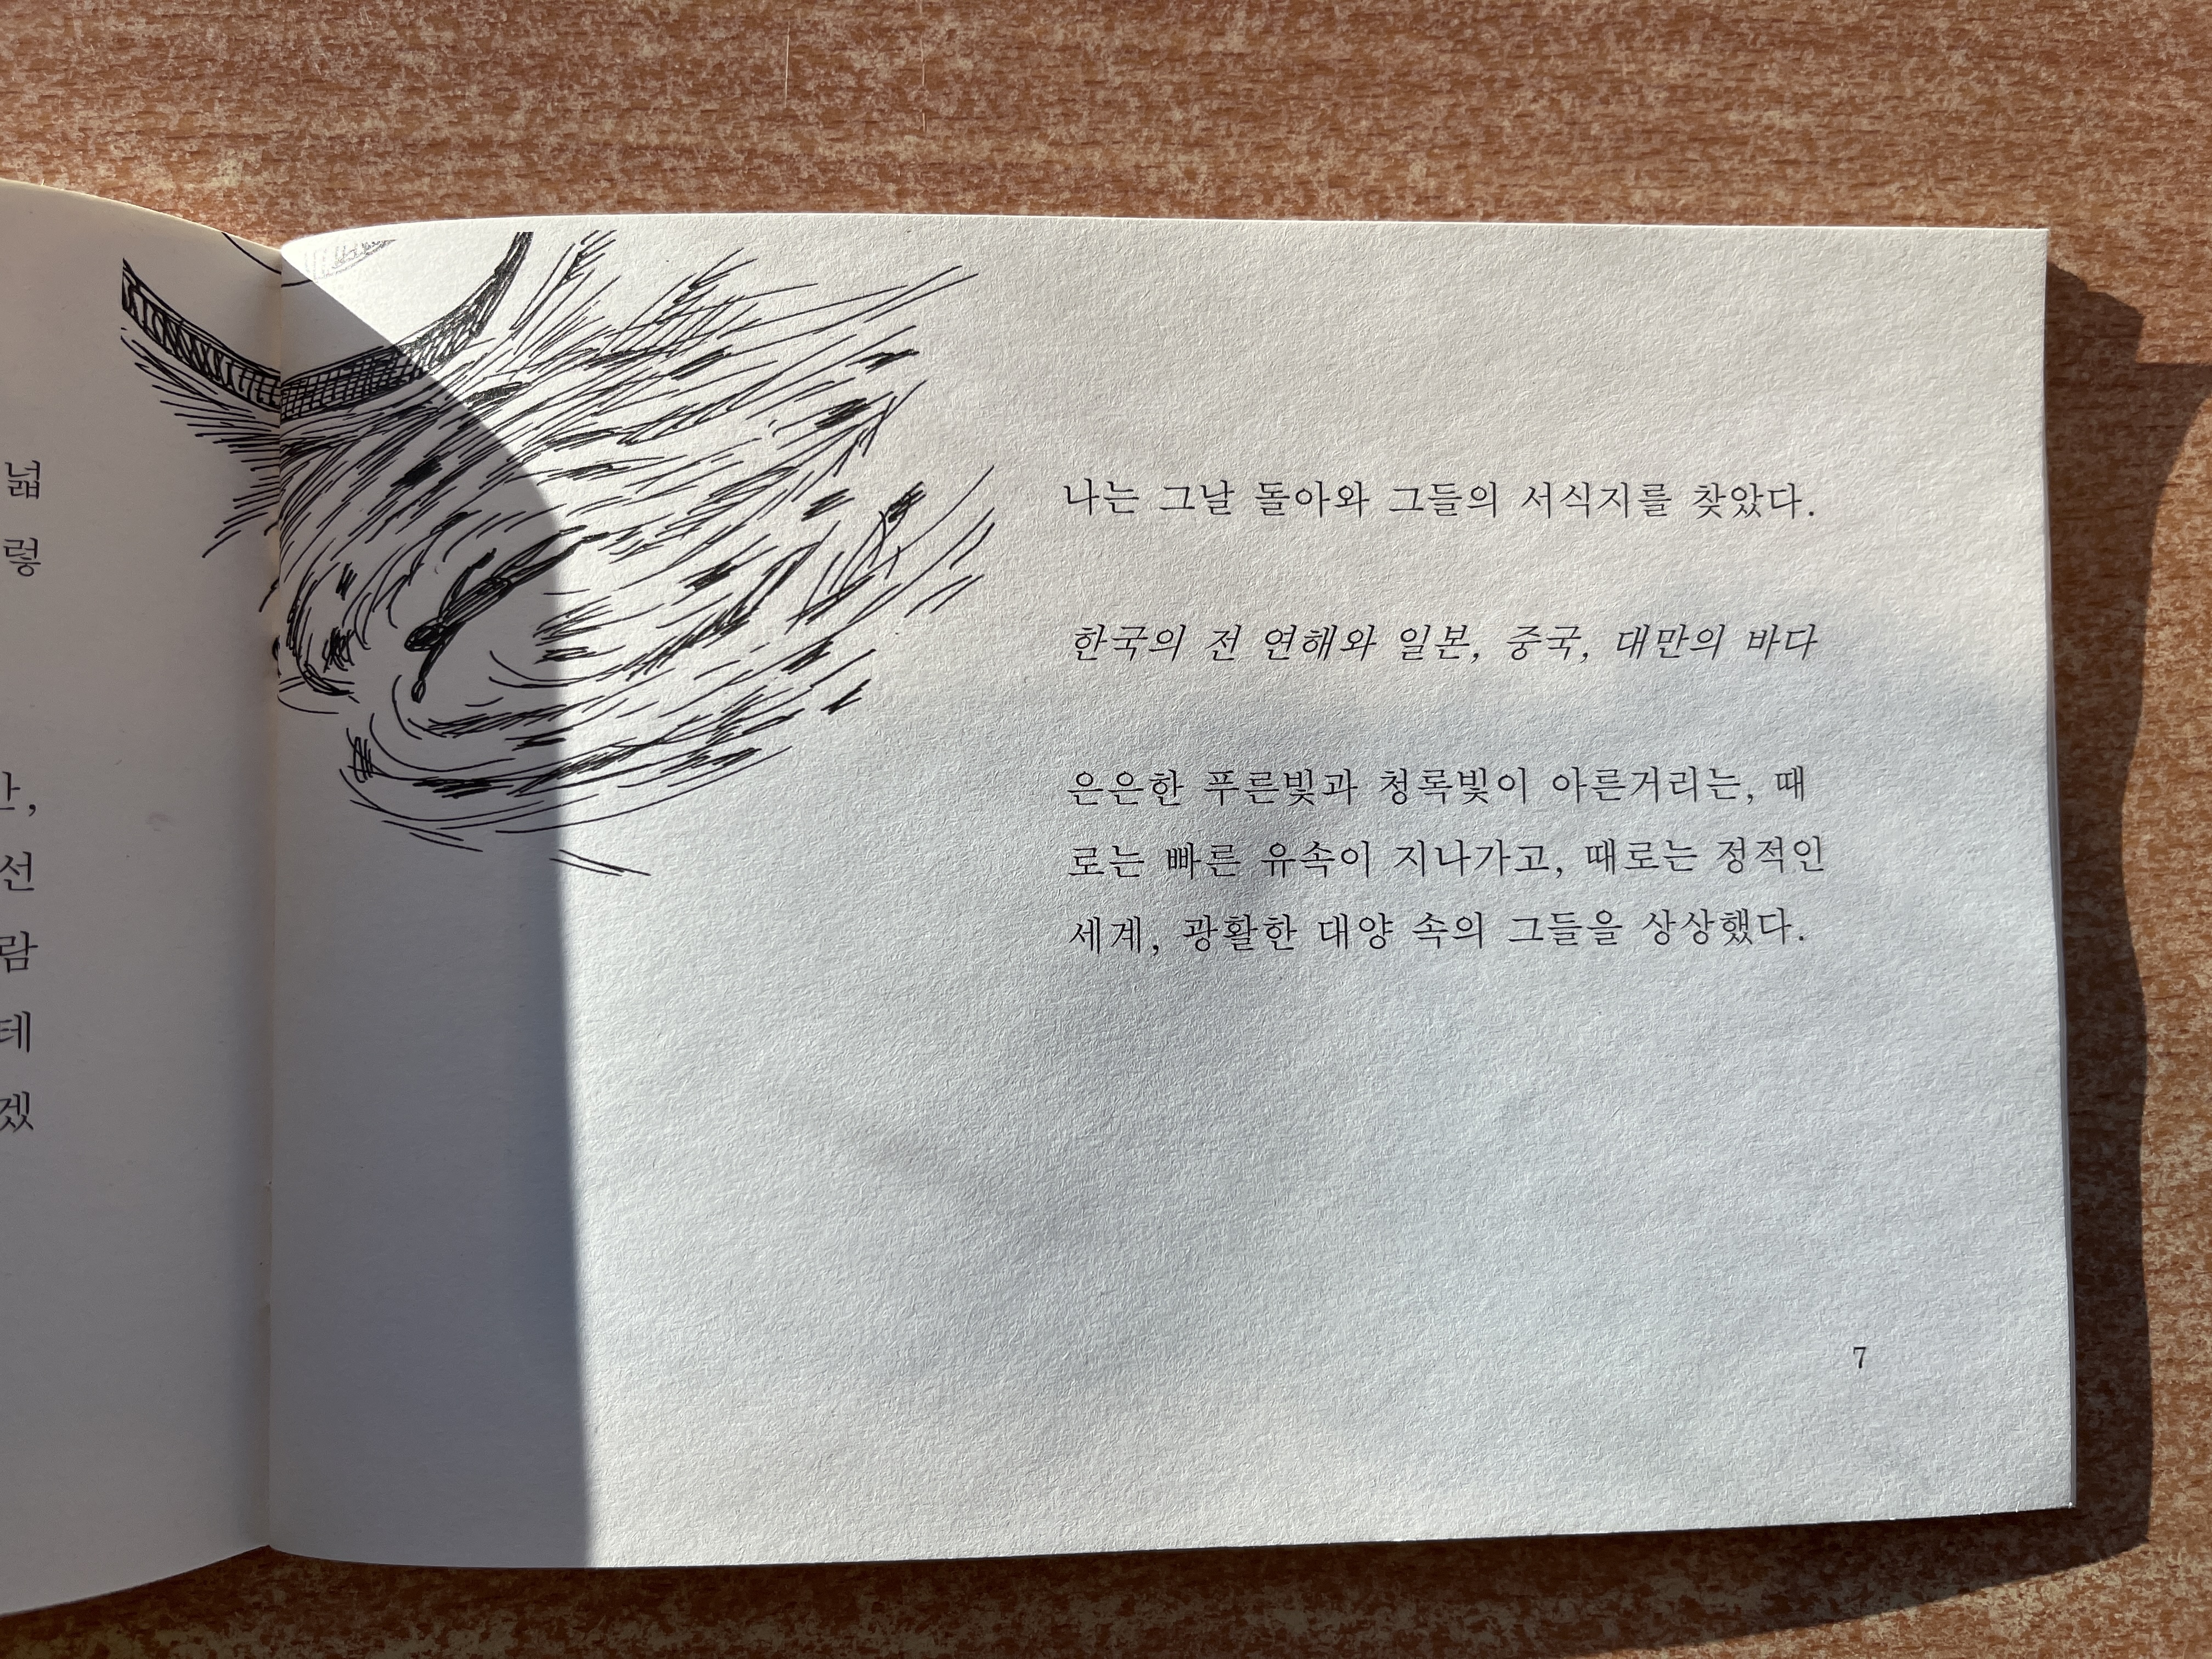 넓
렇
선
람
테
겠
나는 그날 돌아와 그들의 서식지를 찾았다.
한국의 전 연해와 일본, 중국, 대만의 바다
은은한 푸른빛과 청록빛이 아른거리는, 때
로는 빠른 유속이 지나가고, 때로는 정적인
세계, 광활한 대양 속의 그들을 상상했다.
7